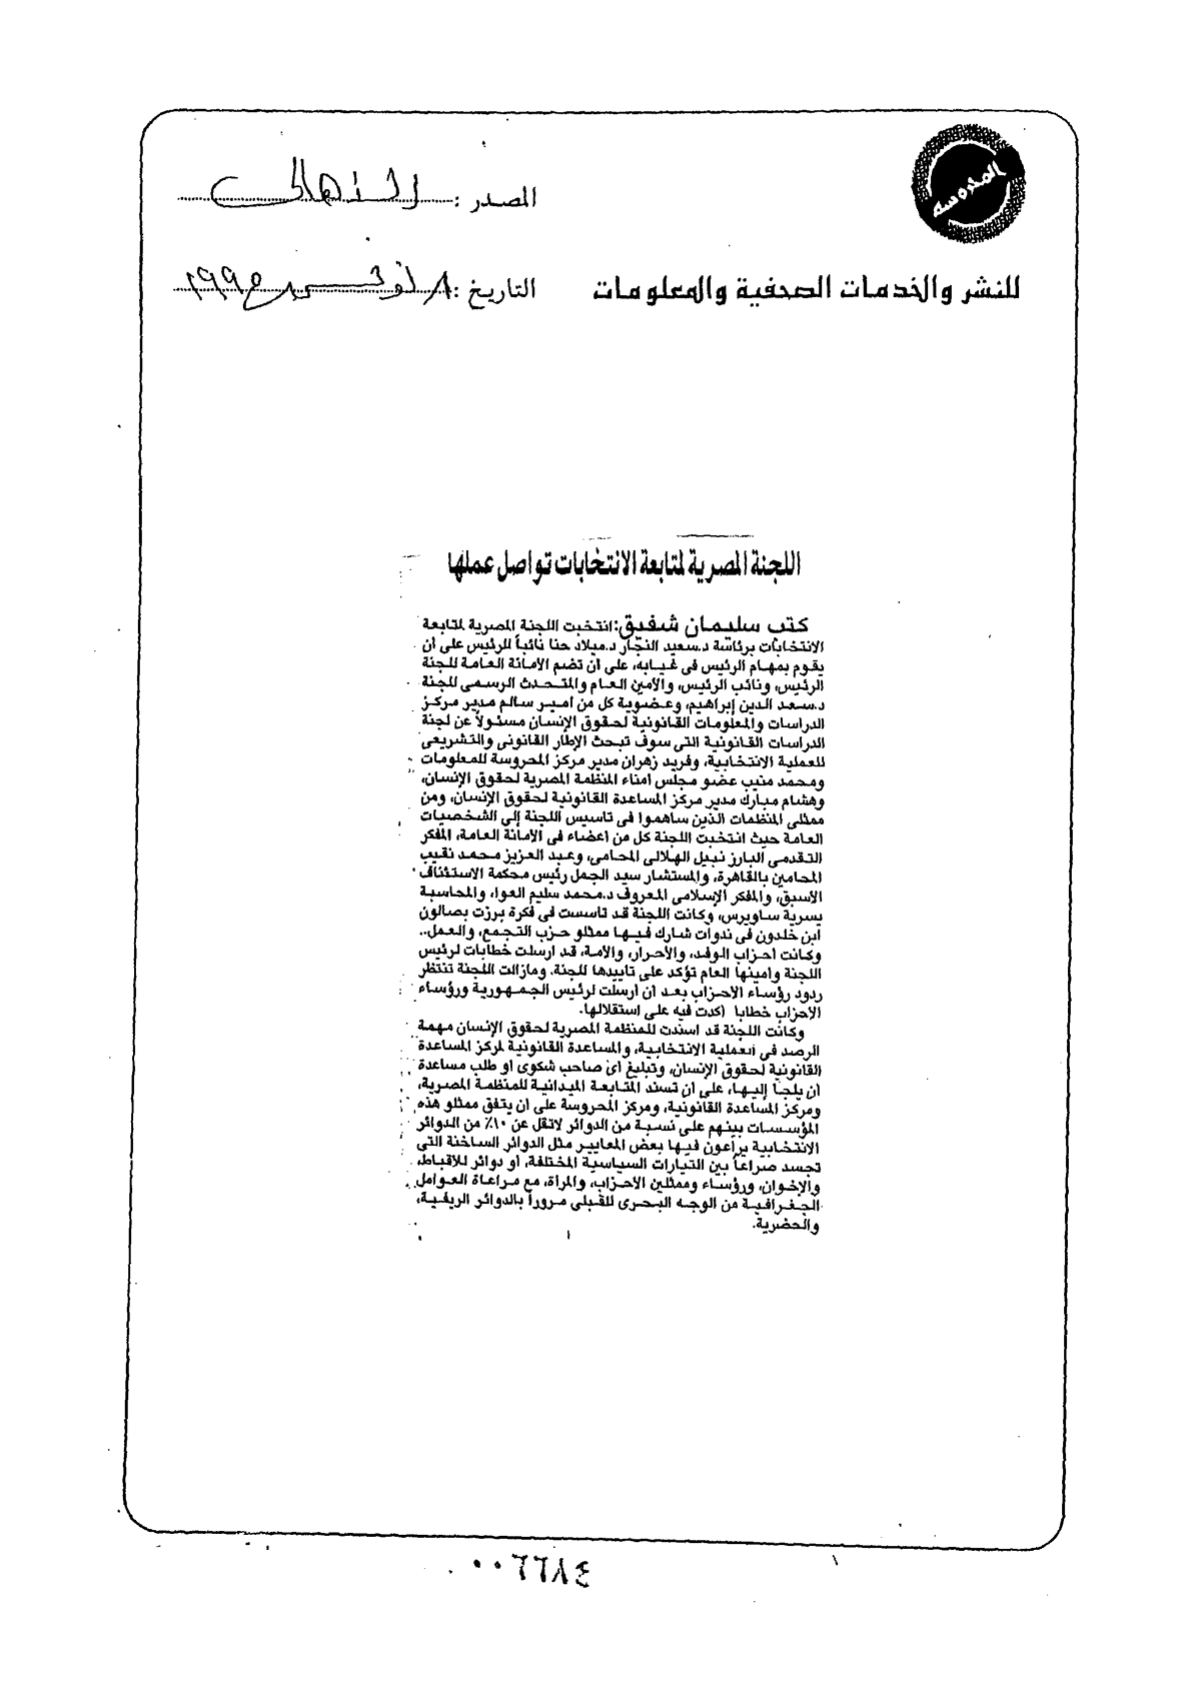 المحروسة
المصدر : الأهالى
للنشر والخدمات الصحفية والمعلومات
التاريخ : ٨ نوفمبر ١٩٩٥
اللجنة المصرية لمتابعة الانتخابات تواصل عملها
كتب سليمان شفيق: انتخبت اللجنة المصرية لمتابعة
الانتخابات برئاسة د.سعيد النجار د.ميلاد حنا نائباً للرئيس على أن
يقوم بمهام الرئيس فى غيابه، على أن تضم الأمانة العامة للجنة
الرئيس، ونائب الرئيس، والأمين العام والمتحدث الرسمى للجنة
د.سعد الدين إبراهيم، وعضوية كل من أمير سالم مدير مركز
الدراسات والمعلومات القانونية لحقوق الإنسان مسئولاً عن لجنة
الدراسات القانونية التى سوف تبحث الإطار القانونى والتشريعى
للعملية الانتخابية، وفريد زهران مدير مركز المحروسة للمعلومات
ومحمد منيب عضو مجلس أمناء المنظمة المصرية لحقوق الإنسان،
وهشام مبارك مدير مركز المساعدة القانونية لحقوق الإنسان، ومن
ممثلى المنظمات الذين ساهموا فى تأسيس اللجنة إلى الشخصيات
العامة حيث انتخبت اللجنة كل من أعضاء فى الأمانة العامة، المفكر
التقدمى البارز نبيل الهلالى المحامى، وعبد العزيز محمد نقيب
المحامين بالقاهرة، والمستشار سيد الجمل رئيس محكمة الاستئناف
الأسبق، والمفكر الإسلامى المعروف د.محمد سليم العوا، والمحاسبة
يسرية ساويرس، وكانت اللجنة قد تأسست فى فكرة برزت بصالون
ابن خلدون فى ندوات شارك فيها ممثلو حزب التجمع، والعمل..
وكانت أحزاب الوفد، والأحرار، والأمة، قد أرسلت خطابات لرئيس
اللجنة وأمينها العام تؤكد على تأييدها للجنة. ومازالت اللجنة تنتظر
ردود رؤساء الأحزاب بعد أن أرسلت لرئيس الجمهورية ورؤساء
الأحزاب خطابا أكدت فيه على استقلالها.
وكانت اللجنة قد أسندت للمنظمة المصرية لحقوق الإنسان مهمة
الرصد فى العملية الانتخابية، والمساعدة القانونية لمركز المساعدة
القانونية لحقوق الإنسان، وتبليغ أى صاحب شكوى أو طلب مساعدة
أن يلجأ إليها، على أن تسند المتابعة الميدانية للمنظمة المصرية،
ومركز المساعدة القانونية، ومركز المحروسة على أن يتفق ممثلو هذه
المؤسسات بينهم على نسبة من الدوائر لاتقل عن ١٠٪ من الدوائر
الانتخابية يراعون فيها بعض المعايير مثل الدوائر الساخنة التى
تجسد صراعاً بين التيارات السياسية المختلفة، أو دوائر للأقباط،
والإخوان، ورؤساء وممثلين الأحزاب، والمرأة، مع مراعاة العوامل
الجغرافية من الوجه البحرى للقبلى مروراً بالدوائر الريفية،
والحضرية.